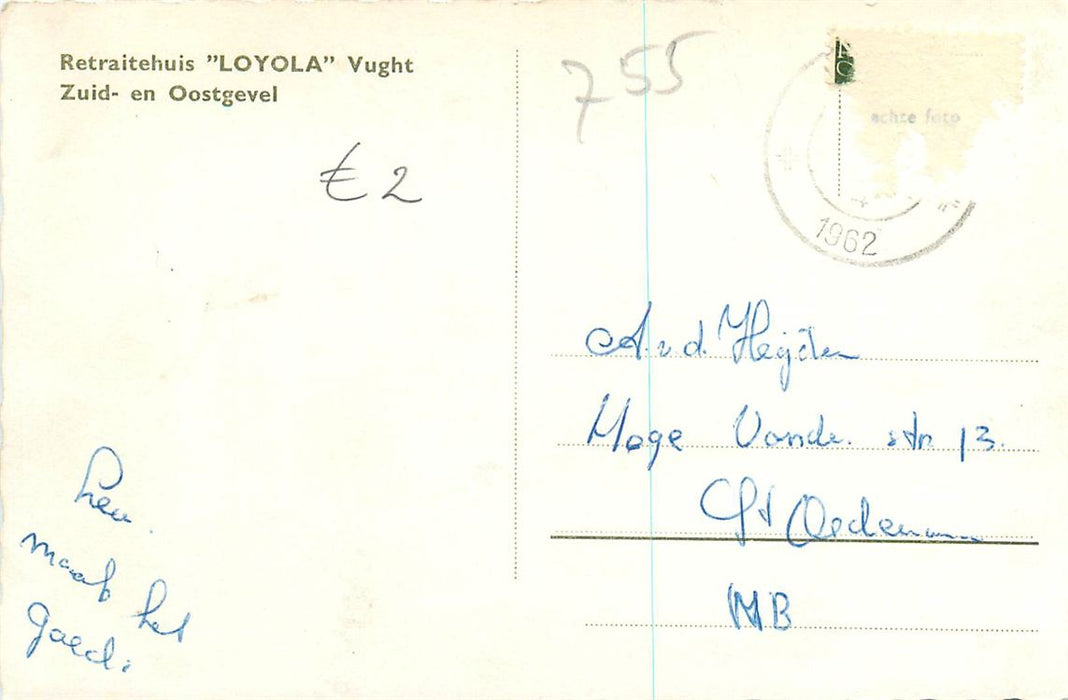 Retraitehuis "LOYOLA" Vught
Zuid- en Oostgevel
€ 2
755
echte foto
1962
A. v. d. Heijden
Hoge Vonde. str 13.
St Oedenrode
NB
maak het
goed.